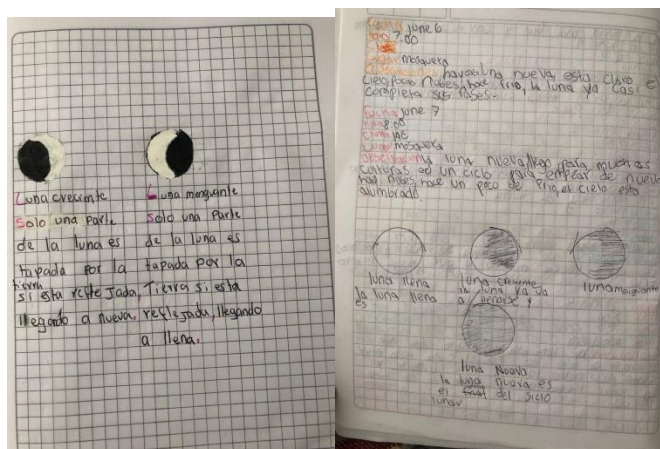 Luna creciente
Solo una parte
de la luna es
tapada por la
tierra
si esta reflejada,
llegando a nueva.
Luna menguante
Solo una parte
de la luna es
tapada por la
Tierra si esta
reflejada, llegando
a llena.
Fecha june 6
7:00
mosquera
nueva, esta claro e
cielo, pocas nubes, hace frio, la luna ya casi
completa sus fases.
Fecha june 7
Hora 8:00
Lugar mosquera
luna nueva, llego para muchas
culturas es un ciclo para empezar de nuevo
hay nubes, hace un poco de frio, el cielo esta
alumbrado.
luna llena
es la luna llena
luna creciente
la luna ya va
a llenarse y
luna menguante
luna Nueva
la luna nueva es
el final del siclo
lunar